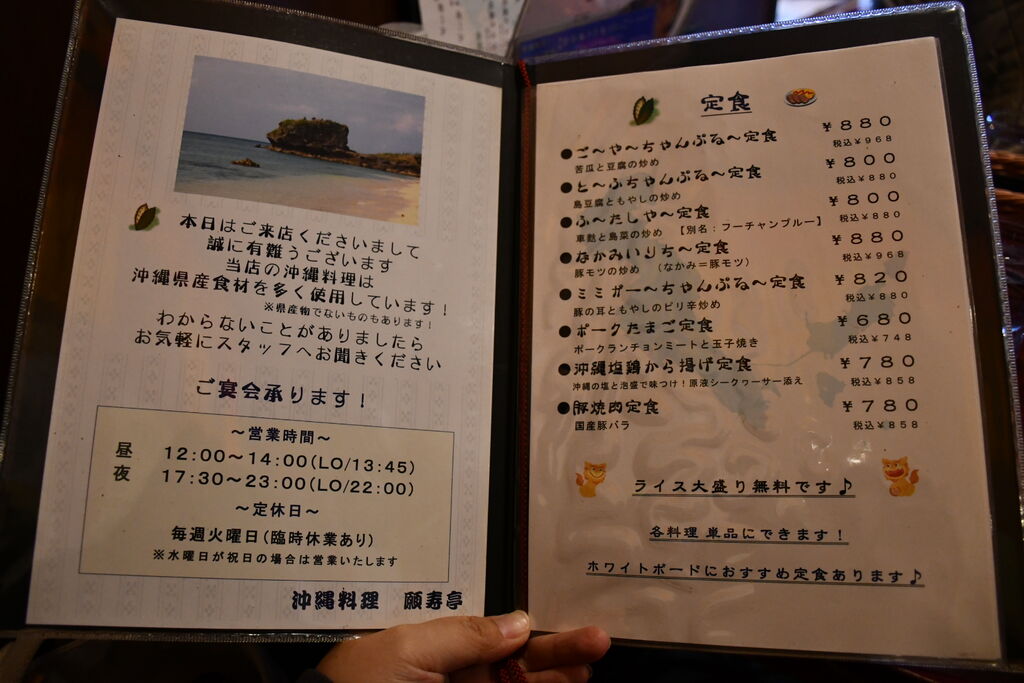 本日はご来店くださいまして
誠に有難うございます
当店の沖縄料理は
沖縄県産食材を多く使用しています！
※県産物でないものもあります！
わからないことがありましたら
お気軽にスタッフへお聞きください
ご宴会承ります！
～営業時間～
昼 12:00～14:00(LO/13:45)
夜 17:30～23:00(LO/22:00)
～定休日～
毎週火曜日(臨時休業あり)
※水曜日が祝日の場合は営業いたします
沖縄料理 願寿亭
定食
●ご～や～ちゃんぷる～定食 ￥８８０
苦瓜と豆腐の炒め 税込￥９６８
●と～ふちゃんぷる～定食 ￥８００
島豆腐ともやしの炒め 税込￥８８０
●ふ～たしや～定食 ￥８００
車麩と島菜の炒め 【別名：フーチャンプルー】 税込￥８８０
●なかみいりち～定食 ￥８８０
豚モツの炒め （なかみ＝豚モツ） 税込￥９６８
●ミミガー～ちゃんぷる～定食 ￥８２０
豚の耳ともやしのピリ辛炒め 税込￥８８０
●ポークたまご定食 ￥６８０
ポークランチョンミートと玉子焼き 税込￥７４８
●沖縄塩鶏から揚げ定食 ￥７８０
沖縄の塩と泡盛で味つけ！原液シークヮーサー添え 税込￥８５８
●豚焼肉定食 ￥７８０
国産豚バラ 税込￥８５８
ライス大盛り無料です♪
各料理 単品にできます！
ホワイトボードにおすすめ定食あります♪